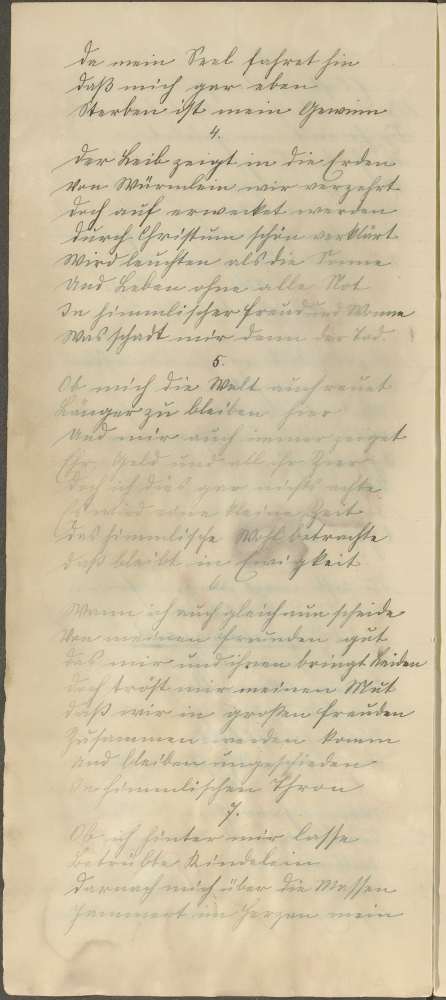 da mein Seel fahret hin
daß mich gar eben
Sterben ist mein Gewinn
4.
Der Leib zeigt in die Erden
Von Würmlein wir verzehrt
doch auf erwecket werden
durch Christum schön verklärt
Wird leuchten als die Sonne
Und Leben ohne alle Not
In himmlischer Freud und Wonne
Was schadt mir denn der Tod.
5.
Ob mich die Welt auch reuet
Länger zu bleiben hier
Und mir auch immer zeiget
Ehr, Geld und all ihr Zier
doch ich dies gar nichts achte
Es wird eine kleine Zeit
das himmlische Wohl betrachte
daß bleibt in Ewigkeit
6.
Wann ich auch gleich nun scheide
Von meinen Freunden gut
das mir und ihnen bringt Leiden
doch tröst mir meinen Mut
daß wir in großen Freuden
Zusammen werden komm
und bleiben ungeschieden
In himmlischen Thron
7.
Ob ich hinter mir lasse
betrübte Kindelein
darnach mich über die Massen
Jammert im Herzen mein